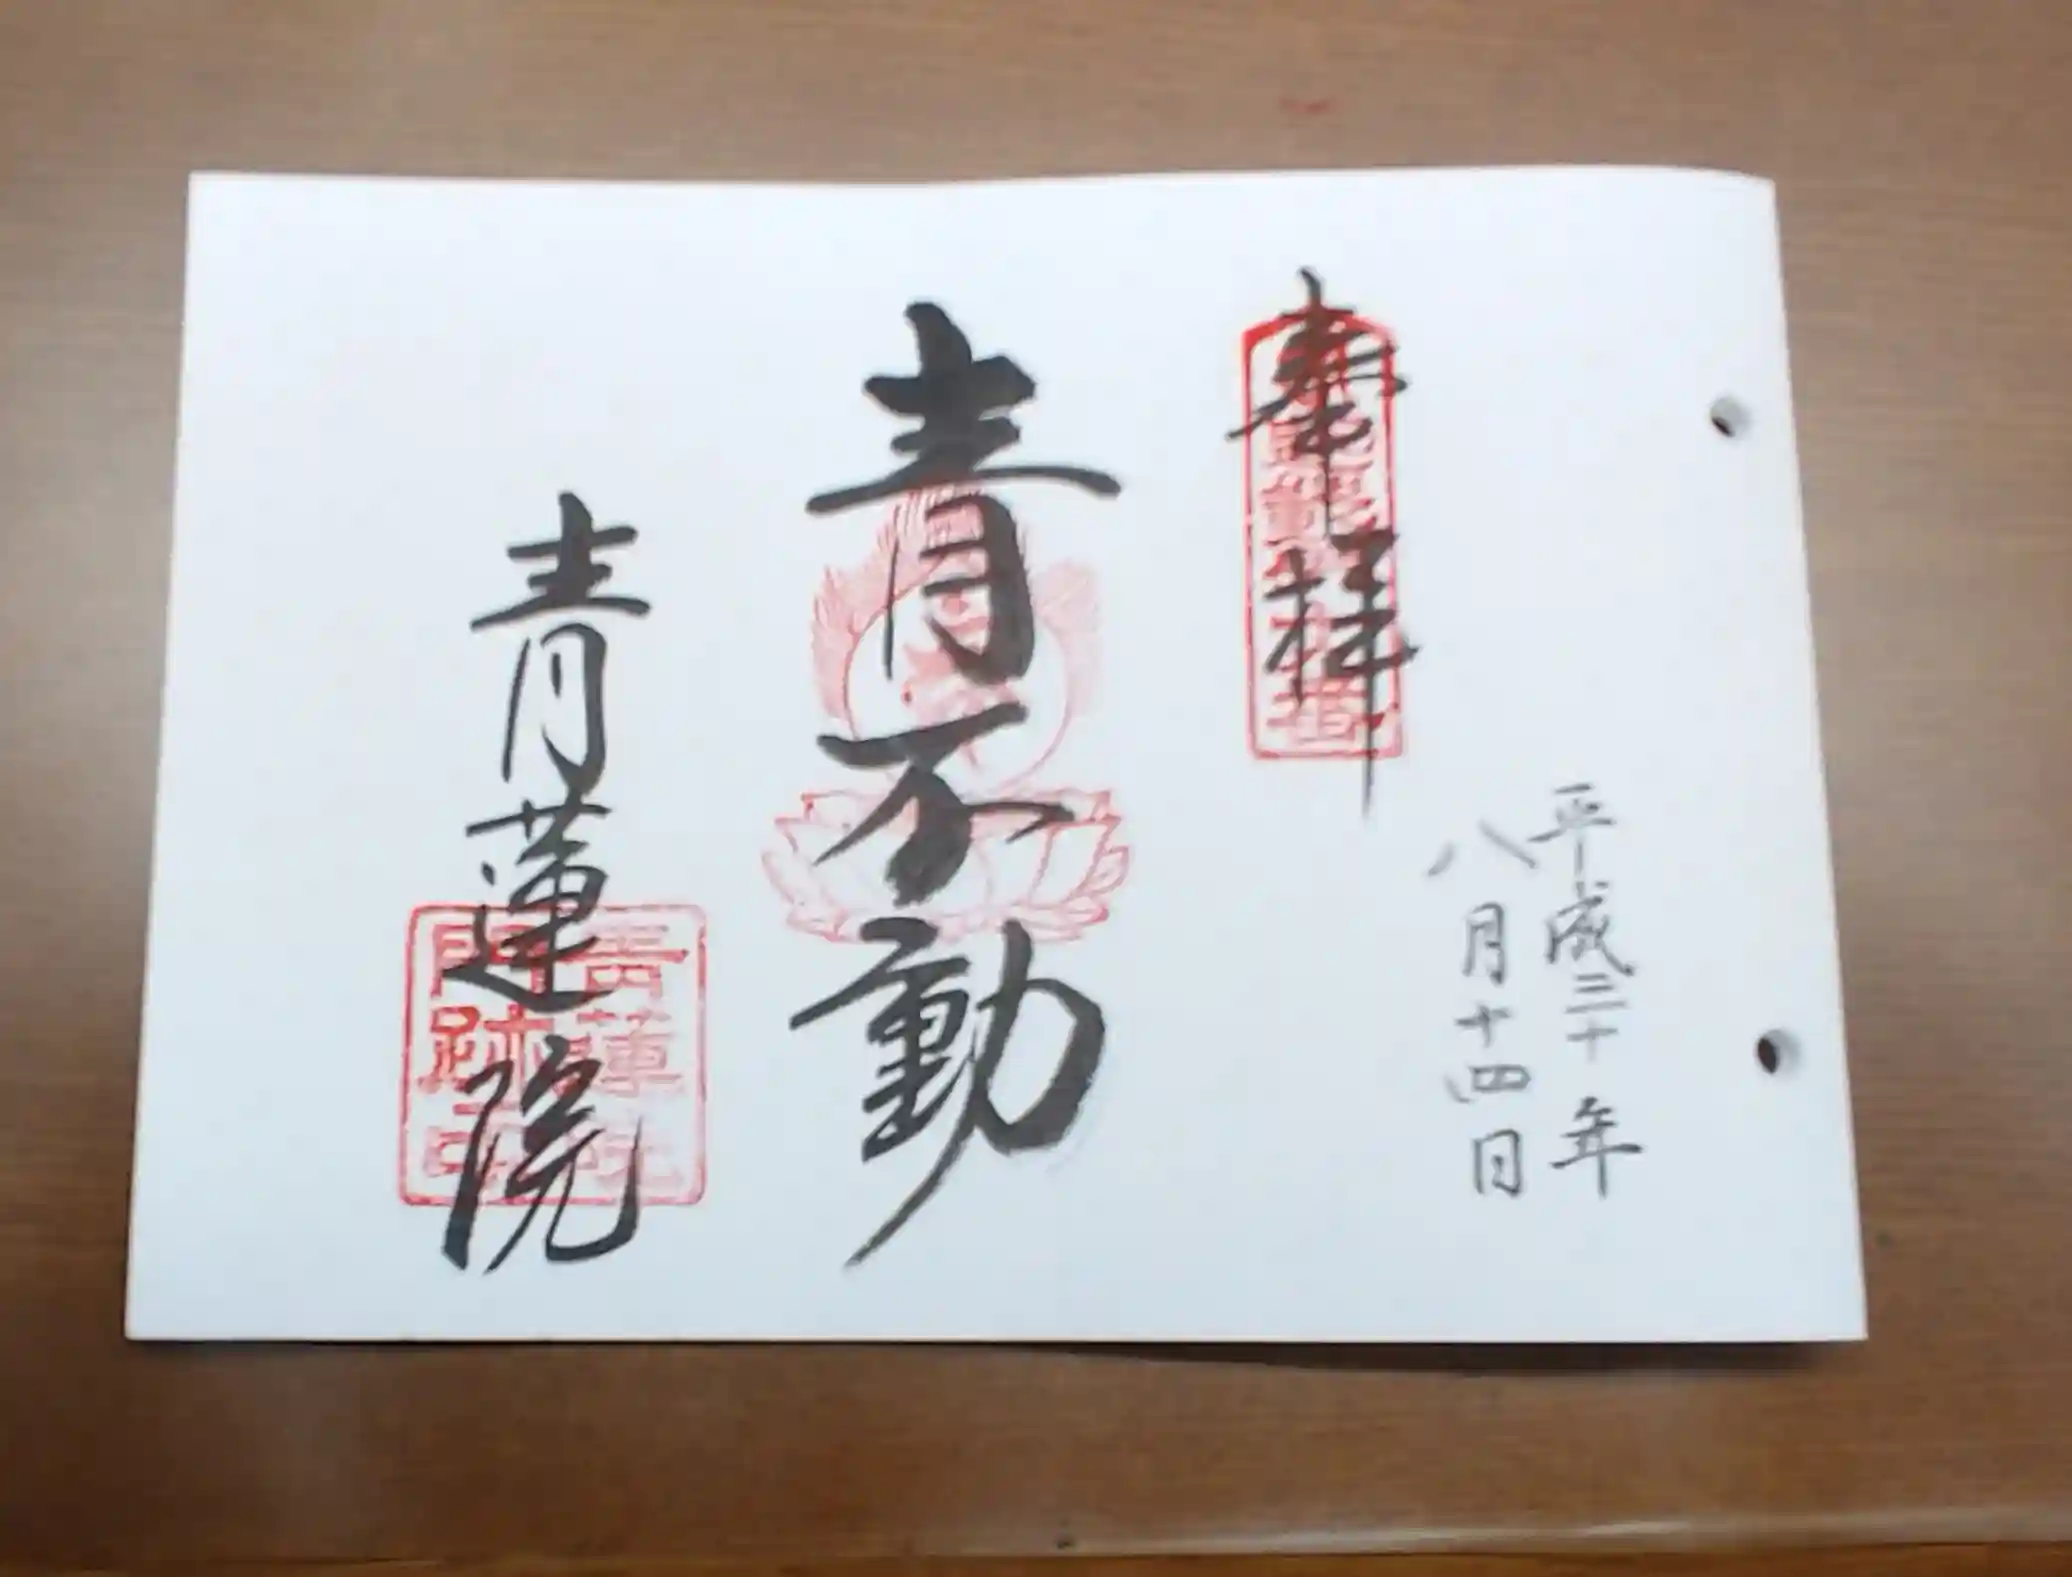 奉拝
平成三十年
八月十四日
青不動
青蓮院
青蓮院
門跡印